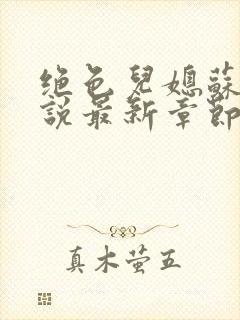 绝色兒媳蘇
說最新章節
真木萤五